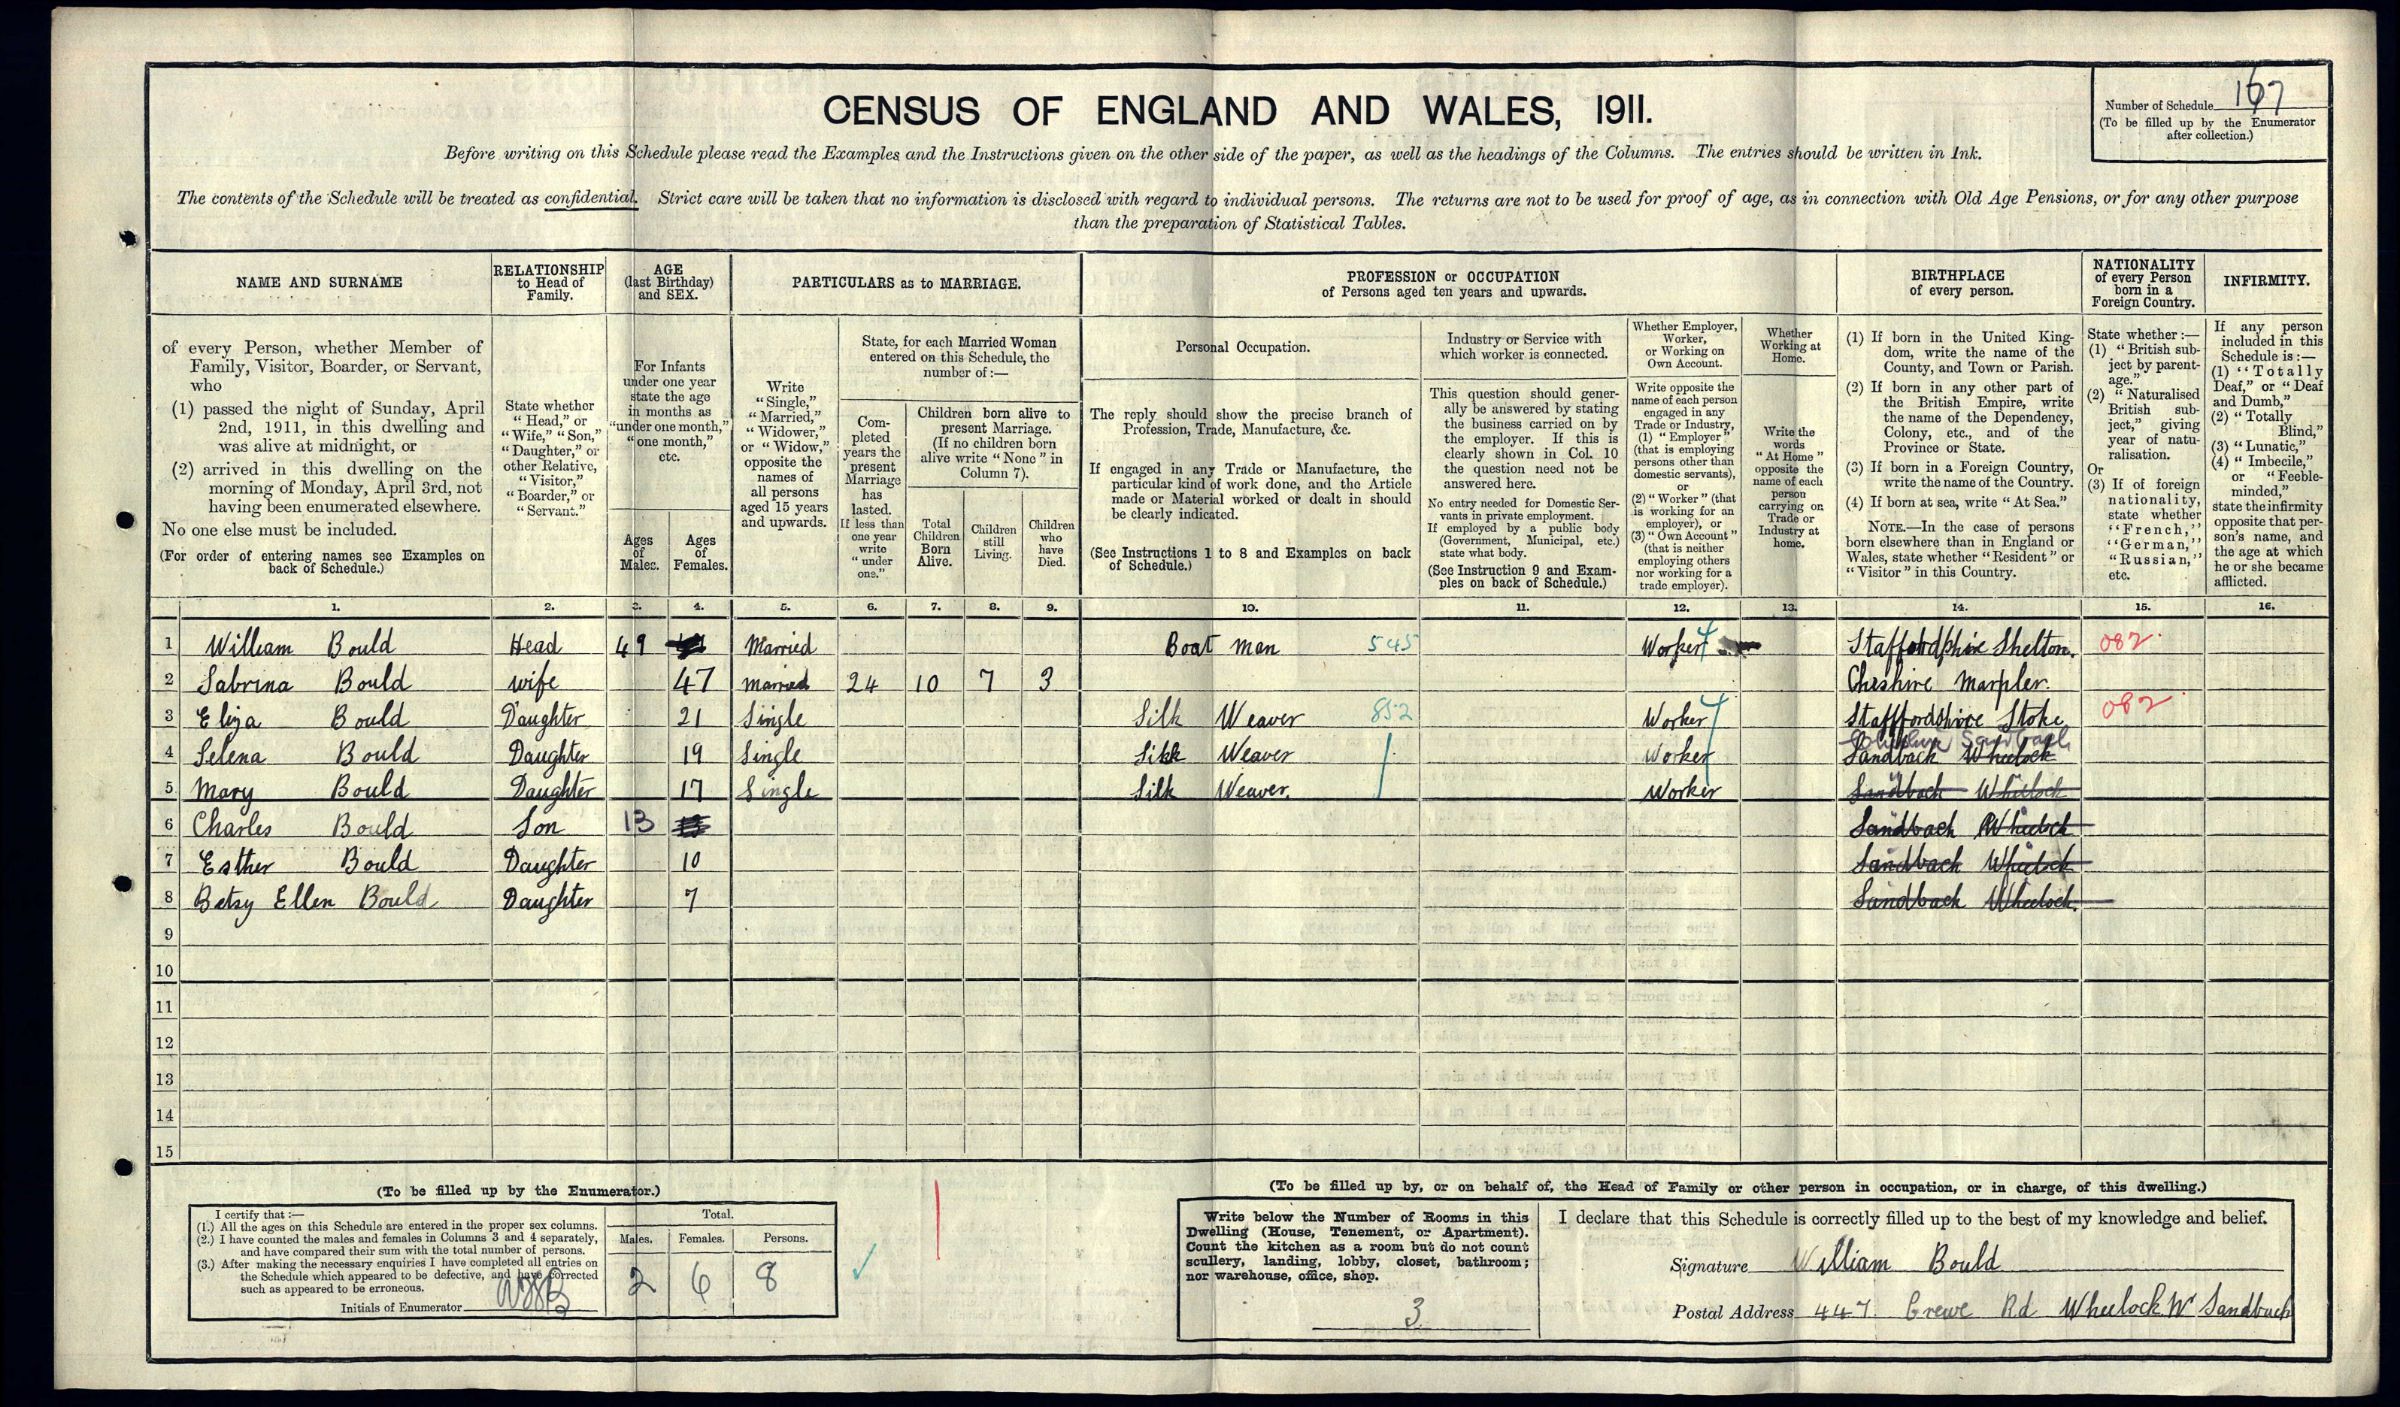 CENSUS OF ENGLAND AND WALES, 1911.
Number of Schedule 167
(To be filled up by the Enumerator
after collection.)
Before writing on this Schedule please read the Examples and the Instructions given on the other side of the paper, as well as the headings of the Columns. The entries should be written in Ink.
The contents of the Schedule will be treated as confidential. Strict care will be taken that no information is disclosed with regard to individual persons. The returns are not to be used for proof of age, as in connection with Old Age Pensions, or for any other purpose
than the preparation of Statistical Tables.
NAME AND SURNAME
of every Person, whether Member of
Family, Visitor, Boarder, or Servant,
who
(1) passed the night of Sunday, April
2nd, 1911, in this dwelling and
was alive at midnight, or
(2) arrived in this dwelling on the
morning of Monday, April 3rd, not
having been enumerated elsewhere.
No one else must be included.
(For order of entering names see Examples on
back of Schedule.)
RELATIONSHIP
to Head of
Family.
State whether
"Head," or
"Wife," "Son,"
"Daughter," or
other Relative,
"Visitor,"
"Boarder," or
"Servant."
AGE
(last Birthday)
and SEX.
For Infants
under one year
state the age
in months as
"under one month,"
"one month,"
etc.
Ages
of
Males.
Ages
of
Females.
PARTICULARS as to MARRIAGE.
Write
"Single,"
"Married,"
"Widower,"
or "Widow,"
opposite the
names of
all persons
aged 15 years
and upwards.
State, for each Married Woman
entered on this Schedule, the
number of:—
Com-
pleted
years the
present
Marriage
has
lasted.
If less than
one year
write
"under
one."
Children born alive to
present Marriage.
(If no children born
alive write "None" in
Column 7).
Total
Children
Born
Alive.
Children
still
Living.
Children
who
have
Died.
PROFESSION or OCCUPATION
of Persons aged ten years and upwards.
Personal Occupation.
The reply should show the precise branch of
Profession, Trade, Manufacture, &c.
If engaged in any Trade or Manufacture, the
particular kind of work done, and the Article
made or Material worked or dealt in should
be clearly indicated.
(See Instructions 1 to 8 and Examples on back
of Schedule.)
Industry or Service with
which worker is connected.
This question should gener-
ally be answered by stating
the business carried on by
the employer. If this is
clearly shown in Col. 10
the question need not be
answered here.
No entry needed for Domestic Ser-
vants in private employment.
If employed by a public body
(Government, Municipal, etc.)
state what body.
(See Instruction 9 and Exam-
ples on back of Schedule.)
Whether Employer,
Worker,
or Working on
Own Account.
Write opposite the
name of each person
engaged in any
Trade or Industry,
(1) "Employer"
(that is employing
persons other than
domestic servants),
or
(2) "Worker" (that
is working for an
employer), or
(3) "Own Account"
(that is neither
employing others
nor working for a
trade employer).
Whether
Working at
Home.
Write the
words
"At Home"
opposite the
name of each
person
carrying on
Trade or
Industry at
home.
BIRTHPLACE
of every person.
(1) If born in the United King-
dom, write the name of the
County, and Town or Parish.
(2) If born in any other part of
the British Empire, write
the name of the Dependency,
Colony, etc., and of the
Province or State.
(3) If born in a Foreign Country,
write the name of the Country.
(4) If born at sea, write "At Sea."
NOTE.—In the case of persons
born elsewhere than in England or
Wales, state whether "Resident" or
"Visitor" in this Country.
NATIONALITY
of every Person
born in a
Foreign Country.
State whether:—
(1) "British sub-
ject by parent-
age."
(2) "Naturalised
British sub-
ject," giving
year of natu-
ralisation.
Or
(3) If of foreign
nationality,
state whether
"French,"
"German,"
"Russian,"
etc.
INFIRMITY.
If any person
included in this
Schedule is:—
(1) "Totally
Deaf," or "Deaf
and Dumb,"
(2) "Totally
Blind,"
(3) "Lunatic,"
(4) "Imbecile,"
or "Feeble-
minded,"
state the infirmity
opposite that per-
son's name, and
the age at which
he or she became
afflicted.
1. 2. 3. 4. 5. 6. 7. 8. 9. 10. 11. 12. 13. 14. 15. 16.
1 William Bould Head 49 Married Boat man 545 Worker Staffordshire Shelton. 082.
2 Sabrina Bould wife 47 Married 24 10 7 3 Cheshire Marpler.
3 Eliza Bould Daughter 21 Single Silk Weaver 852 Worker Stafffordshire Stoke 082
Cheshire Sandbach
4 Selena Bould Daughter 19 Single Sikk Weaver Worker Sandback Wheelock
5 Mary Bould Daughter 17 Single Silk Weaver. Worker Sandbach Wheelock
6 Charles Bould Son 13 Sandbach Wheelock
7 Esther Bould Daughter 10 Sandbach Wheelock
8 Betsy Ellen Bould Daughter 7 Sandbach Wheelock.
9
10
11
12
13
14
15
(To be filled up by the Enumerator.)
I certify that:—
(1.) All the ages on this Schedule are entered in the proper sex columns.
(2.) I have counted the males and females in Columns 3 and 4 separately,
and have compared their sum with the total number of persons.
(3.) After making the necessary enquiries I have completed all entries on
the Schedule which appeared to be defective, and have corrected
such as appeared to be erroneous.
Initials of Enumerator
Total.
Males. Females. Persons.
2 6 8
(To be filled up by, or on behalf of, the Head of Family or other person in occupation, or in charge, of this dwelling.)
Write below the Number of Rooms in this
Dwelling (House, Tenement, or Apartment).
Count the kitchen as a room but do not count
scullery, landing, lobby, closet, bathroom;
nor warehouse, office, shop.
3
I declare that this Schedule is correctly filled up to the best of my knowledge and belief.
Signature William Bould
Postal Address 447. Crewe Rd Wheelock Nr Sandbach